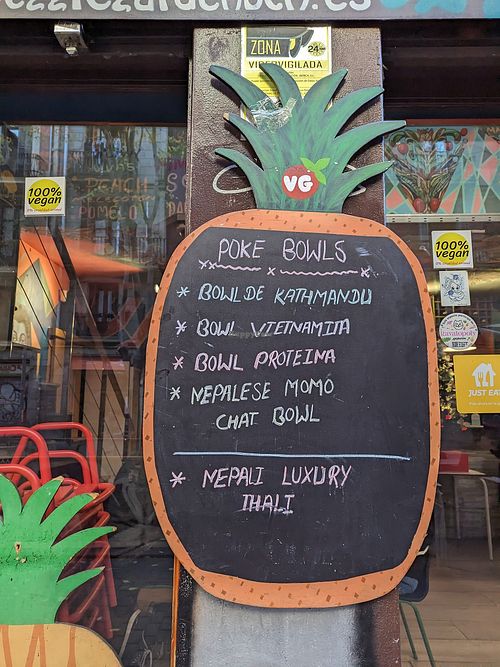 ZONA
24
VIDEOVIGILADA
VG
100%
vegan
100%
vegan
POKE BOWLS
* BOWL DE KATHMANDU
* BOWL VIETNAMITA
* BOWL PROTEINA
* NEPALESE MOMO
CHAT BOWL
* NEPALI LUXURY
THALI
JUST EAT
PEACH
POMELO